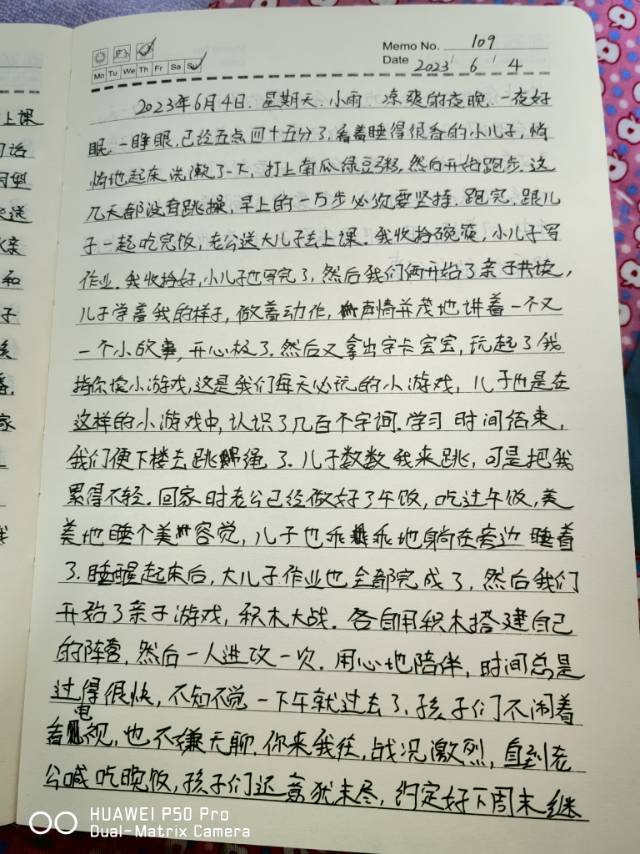 Memo No. 109
Mo Tu We Th Fr Sa Su
Date 2023 / 6 / 4
2023年6月4日.星期天.小雨 凉爽的夜晚.一夜好
眠.一睁眼,已经五点四十五分了,看着睡得很香的小儿子,悄
悄地起床洗漱了一下,打上南瓜绿豆粥,然后开始跑步.这
几天都没有跳操,早上的一万步必须要坚持.跑完,跟儿
子一起吃完饭,老公送大儿子去上课.我收拾碗筷,小儿子写
作业.我收拾好,小儿子也写完了,然后我们俩开始了亲子共读,
儿子学着我的样子,做着动作,声情并茂地讲着一个又
一个小故事,开心极了.然后又拿出字卡宝宝,玩起了我
指你读小游戏,这是我们每天必玩的小游戏,儿子也是在
这样的小游戏中,认识了几百个字词.学习时间结束,
我们便下楼去跳绳了.儿子数数我来跳,可是把我
累得不轻.回家时老公已经做好了午饭,吃过午饭,美
美地睡个美容觉,儿子也乖乖地躺在旁边睡着
了.睡醒起床后,大儿子作业也全部完成了,然后我们
开始了亲子游戏,积木大战.各自用积木搭建自己
的阵营,然后一人进攻一次.用心地陪伴,时间总是
过得很快,不知不觉一下午就过去了.孩子们不闹着
看电视,也不嫌无聊.你来我往,战况激烈,直到老
公喊吃晚饭,孩子们还意犹未尽,约定好下周末继
上课
送
和
子
家
HUAWEI P50 Pro
Dual-Matrix Camera